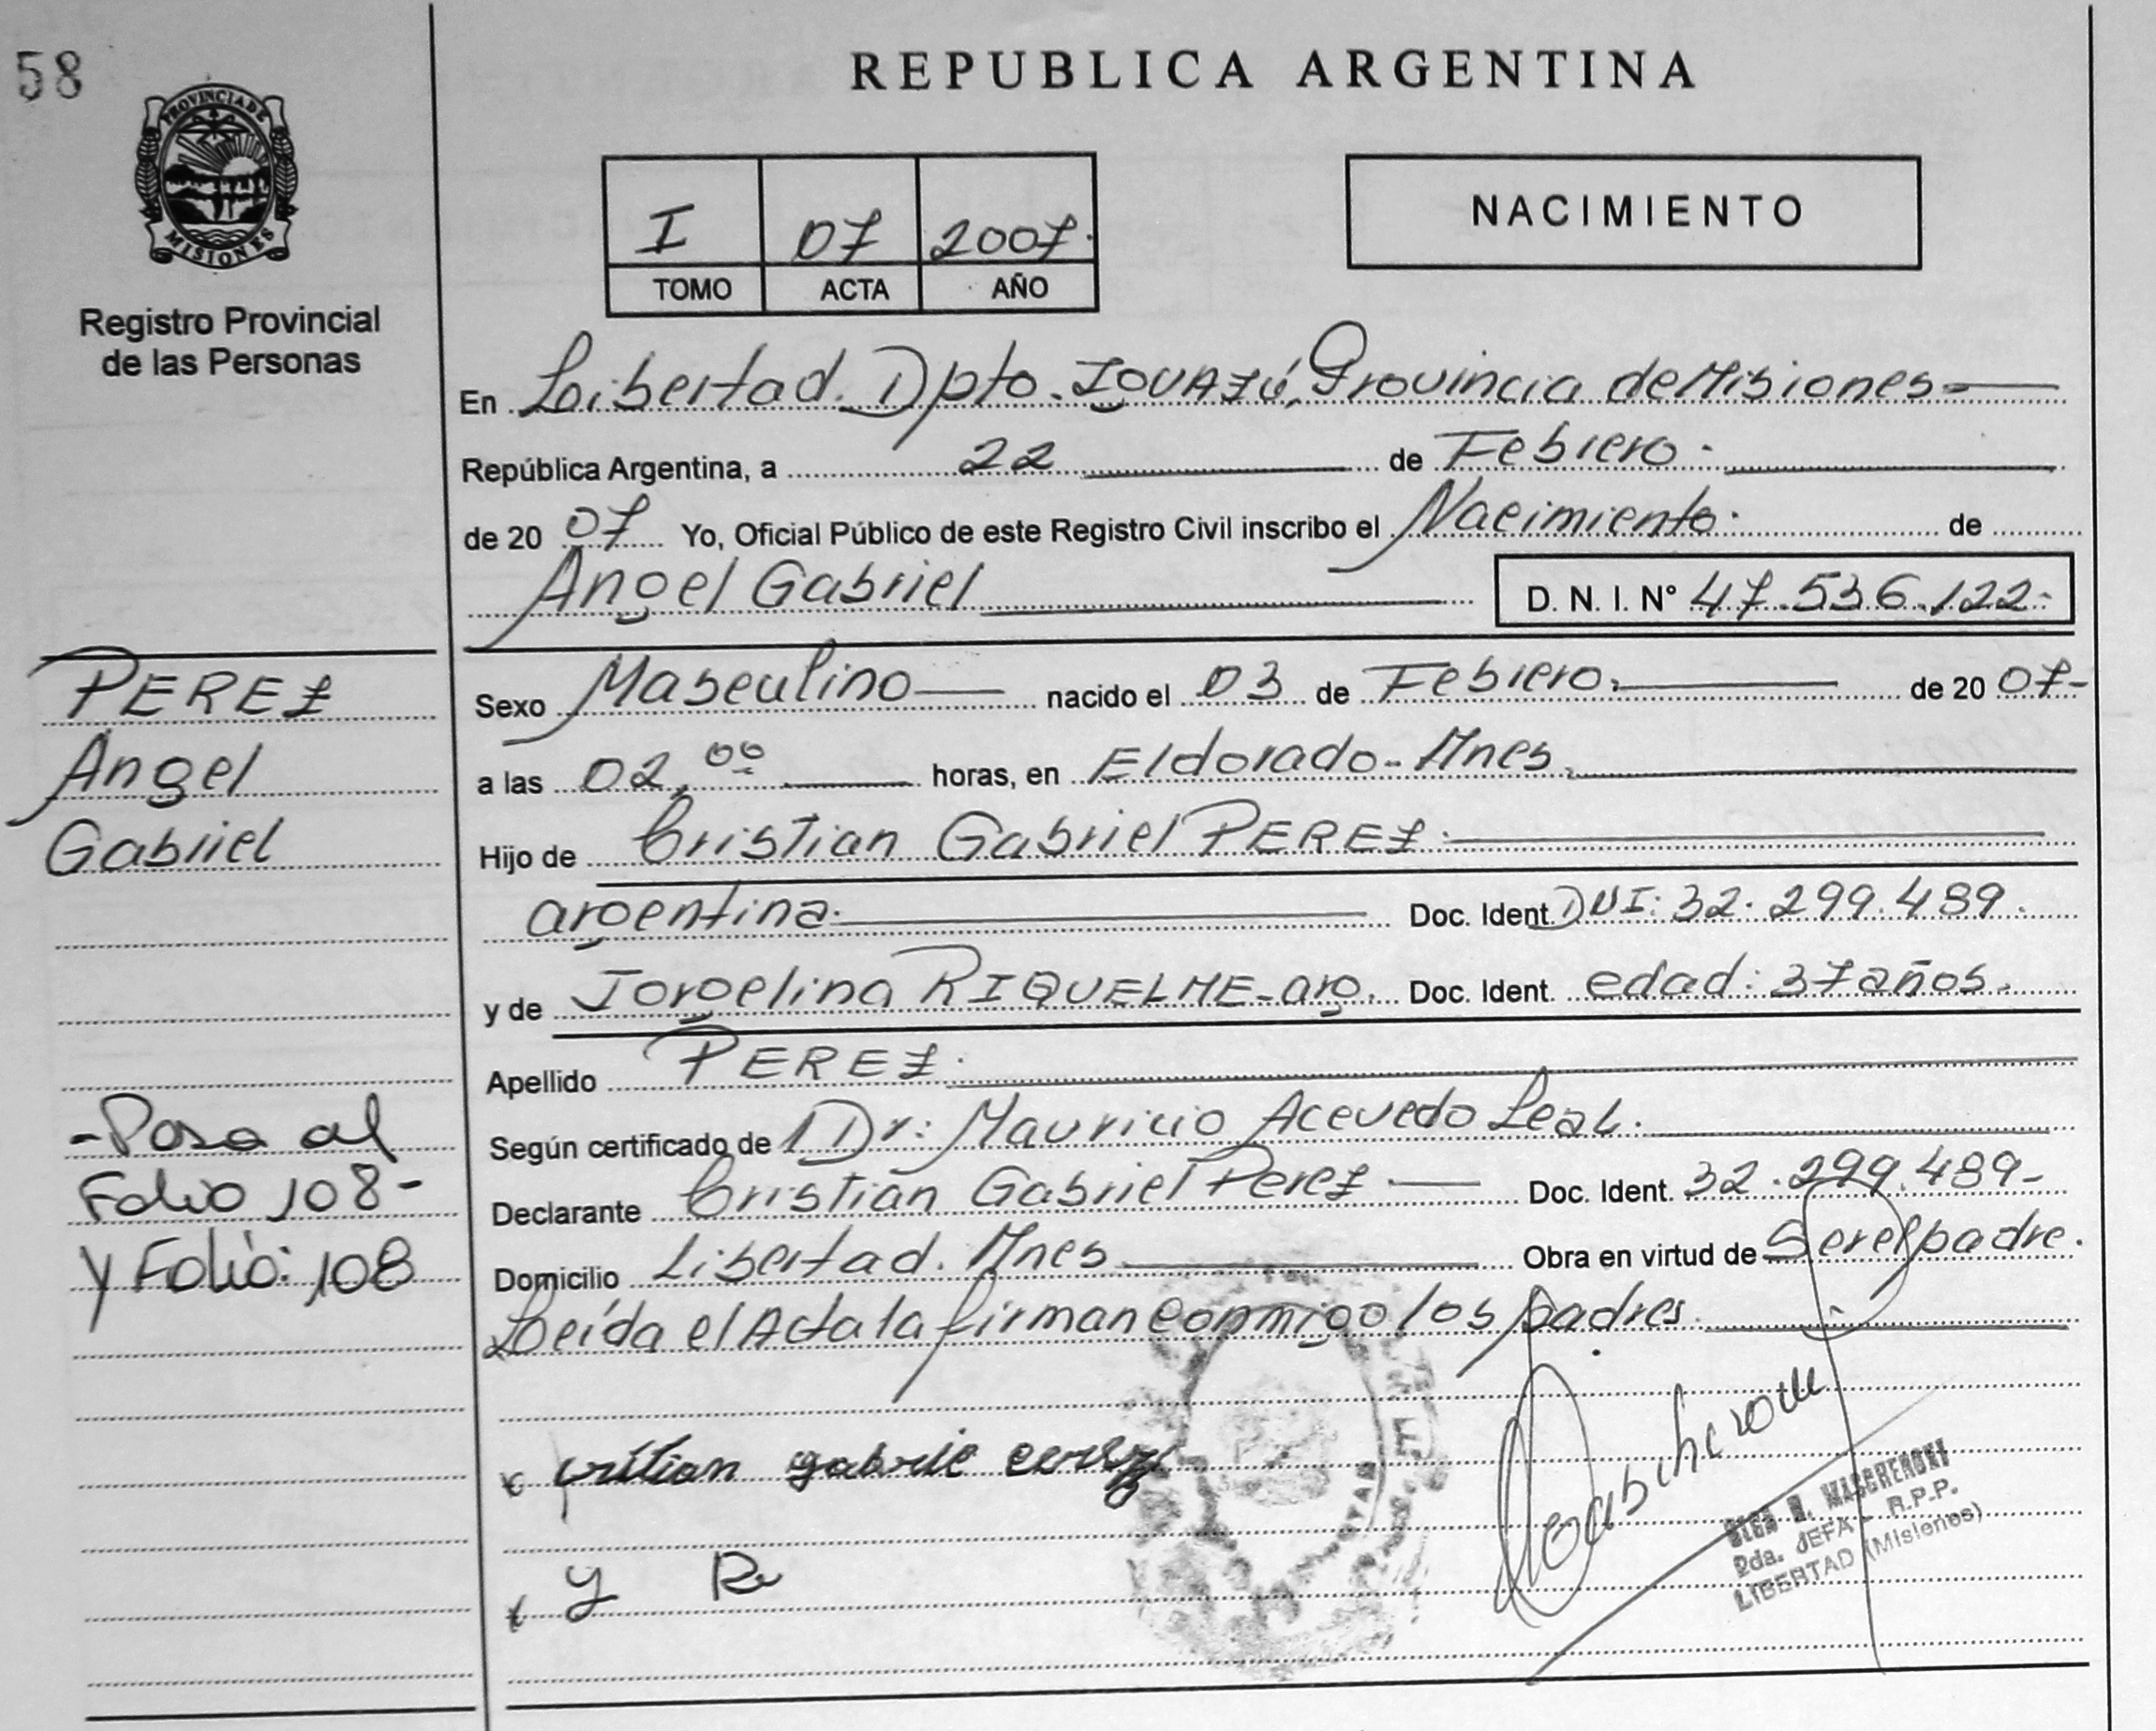 58
REPUBLICA ARGENTINA
PROVINCIA DE
MISIONES
Registro Provincial
de las Personas
I 07 2007.
TOMO ACTA AÑO
NACIMIENTO
En Libertad. Dpto. IGUAZÚ, Provincia de Misiones
República Argentina, a 22 de Febrero.
de 20 07 Yo, Oficial Público de este Registro Civil inscribo el Nacimiento. de
Angel Gabriel D. N. I. N° 47.536.122-
PEREZ
Angel
Gabriel
Sexo Masculino nacido el 03 de Febrero. de 20 07-
a las 02,00 horas, en Eldorado-Mnes.
Hijo de Cristian Gabriel PEREZ.
argentina. Doc. Ident. DNI: 32.299.489.
y de Jorgelina RIQUELME-arg. Doc. Ident. edad: 37 años.
Apellido PEREZ.
Según certificado de Dr: Mauricio Acevedo Leal.
Declarante Cristian Gabriel Perez Doc. Ident. 32.299.489-
Domicilio Libertad. Mnes Obra en virtud de Ser el padre.
Leída el Acta la firman conmigo los padres.
-Pasa al
Folio 108-
y Folio: 108
x gabrie
x y R
OLGA MASCHERONI
JEFA R.P.P.
LIBERTAD (Misiones)